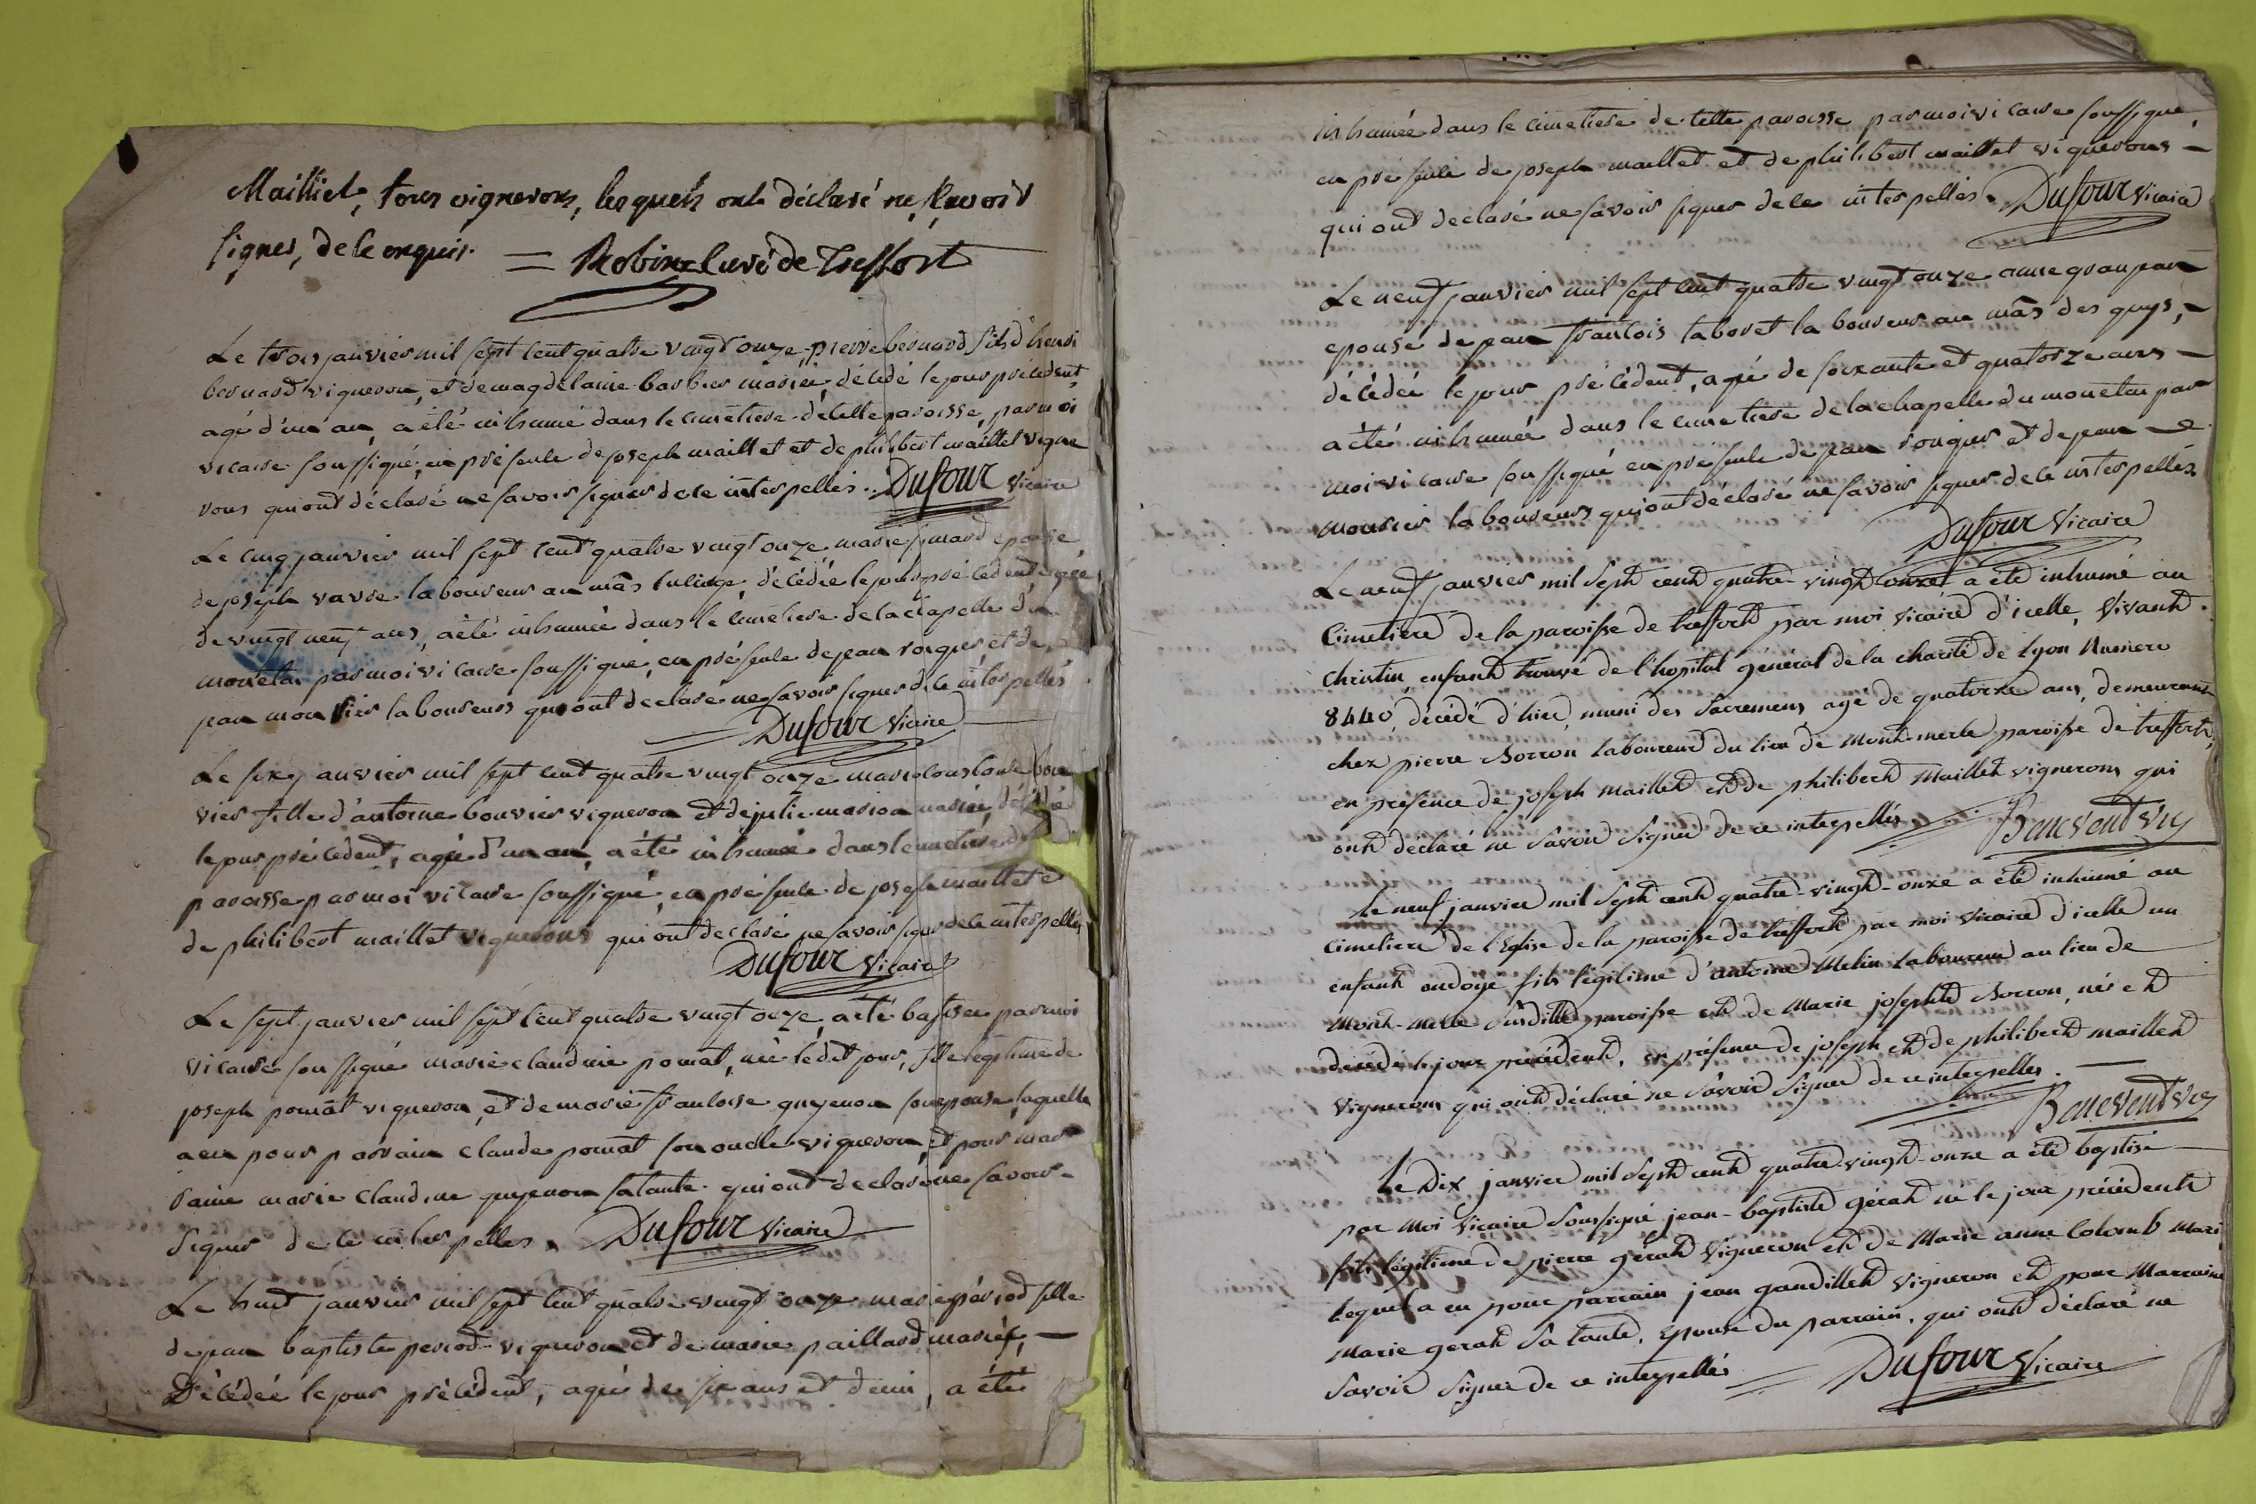 Mailliet, tous vignerons, lesquels ont déclaré ne sçavoir
signer, de ce enquis. = Robin Curé de Treffort
Le trois janvier mil sept cent quatre vingt onze, pierre bernard fils d'henri
bernard vigneron, et de magdelaine barbier mariés, décédé le jour précédent,
agé d'un an, a été inhumé dans le cimetiere de cette paroisse, par moi
vicaire soussigné, en présence de joseph maillet et de philibert maillet vigne
rons qui ont déclaré ne savoir signer de ce interpellés. Dufour Vicaire
Le cinq janvier mil sept cent quatre vingt onze marie simard epouse
de joseph vavre laboureur au mas, décédée le jour précédent, agée
de vingt neuf ans, a été inhumée dans le cimetiere de la chapelle du
monetay par moi vicaire soussigné, en présence de jean rongier et de
jean mousier laboureurs qui ont declaré ne savoir signer de ce interpellés
Dufour Vicaire
Le six janvier mil sept cent quatre vingt onze marie constance bou
vier fille d'antoine bouvier vigneron et de julie marion mariés, décédée
le jour précédent, agée d'un an, a été inhumée dans le cimetiere de
paroisse par moi vicaire soussigné, en présence de joseph maillet e
de philibert maillet vignerons qui ont declaré ne savoir signer de ce interpellés
Dufour Vicaire
Le sept janvier mil sept cent quatre vingt onze, a été baptisée par moi
vicaire soussigné marie claudine pomat, née ledit jour, fille légitime de
joseph pomat vigneron, et de marie françoise guyenon son epouse, laquelle
a eu pour parrain claude pomat son oncle vigneron, et pour mar
raine marie claudine guyenon sa tante. qui ont declaré ne savoir
signer de ce interpellés. Dufour Vicaire
Le huit janvier mil sept cent quatre vingt onze marie périod fille
de jean baptiste period vigneron et de marie paillard mariés,
Décédée le jour précédent, agée de six ans et demi, a été
inhumée dans le cimetiere de cette paroisse par moi vicaire soussigné,
en présence de joseph maillet et de philibert maillet vignerons
qui ont declaré ne savoir signer de ce interpellés. Dufour Vicaire
Le neuf janvier mil sept cent quatre vingt onze anne
epouse de jean francois taboret laboureur au mas des guys,
décédée le jour précédent, agée de soixante et quatorze ans
a été inhumée dans le cimetiere de la chapelle du monetay par
moi vicaire soussigné en présence de jean rongier et de jean
mousier laboureurs qui ont déclaré ne savoir signer de ce interpellés
Dufour Vicaire
Le neuf janvier mil Sept cent quatre vingt onze a été inhumé au
Cimetiere de la paroisse de treffort par moi Vicaire d'icelle, Vivant
christin enfant trouvé de l'hopital général de la charité de Lyon Numero
8440, décédé d'hier, muni des Sacremens agé de quatorze ans, demeurant
chez pierre Borron laboureur du lieu de Mont-merle paroisse de treffort,
en presence de joseph Maillet et de philibert Maillet vignerons qui
ont déclaré ne savoir Signer de ce interpellés Benevent Vic
Le neuf janvier mil Sept cent quatre-vingt-onze a été inhumé au
Cimetiere de l'Eglise de la paroisse de treffort par moi Vicaire d'icelle un
enfant ondoyé fils légitime d'antoine Melin laboureur au lieu de
Mont-Merle Susditte paroisse et de Marie josephte Borron, nés et
décédé le jour précédent, en présence de joseph et de philibert maillet
Vignerons qui ont déclaré ne Savoir Signer de ce interpellés.
Benevent Vic
Le Dix janvier mil Sept cent quatre-vingt-onze a été baptisé
par Moi Vicaire Soussigné jean-baptiste gérat né le jour précédent
fils légitime de pierre gérat Vigneron et de Marie anne Colomb Mari
lequel a eu pour parrain jean gaudillet vigneron et pour Marraine
Marie gerat Sa tante, Epouse du parrain, qui ont déclaré ne
Savoir Signer de ce interpellés Dufour Vicaire